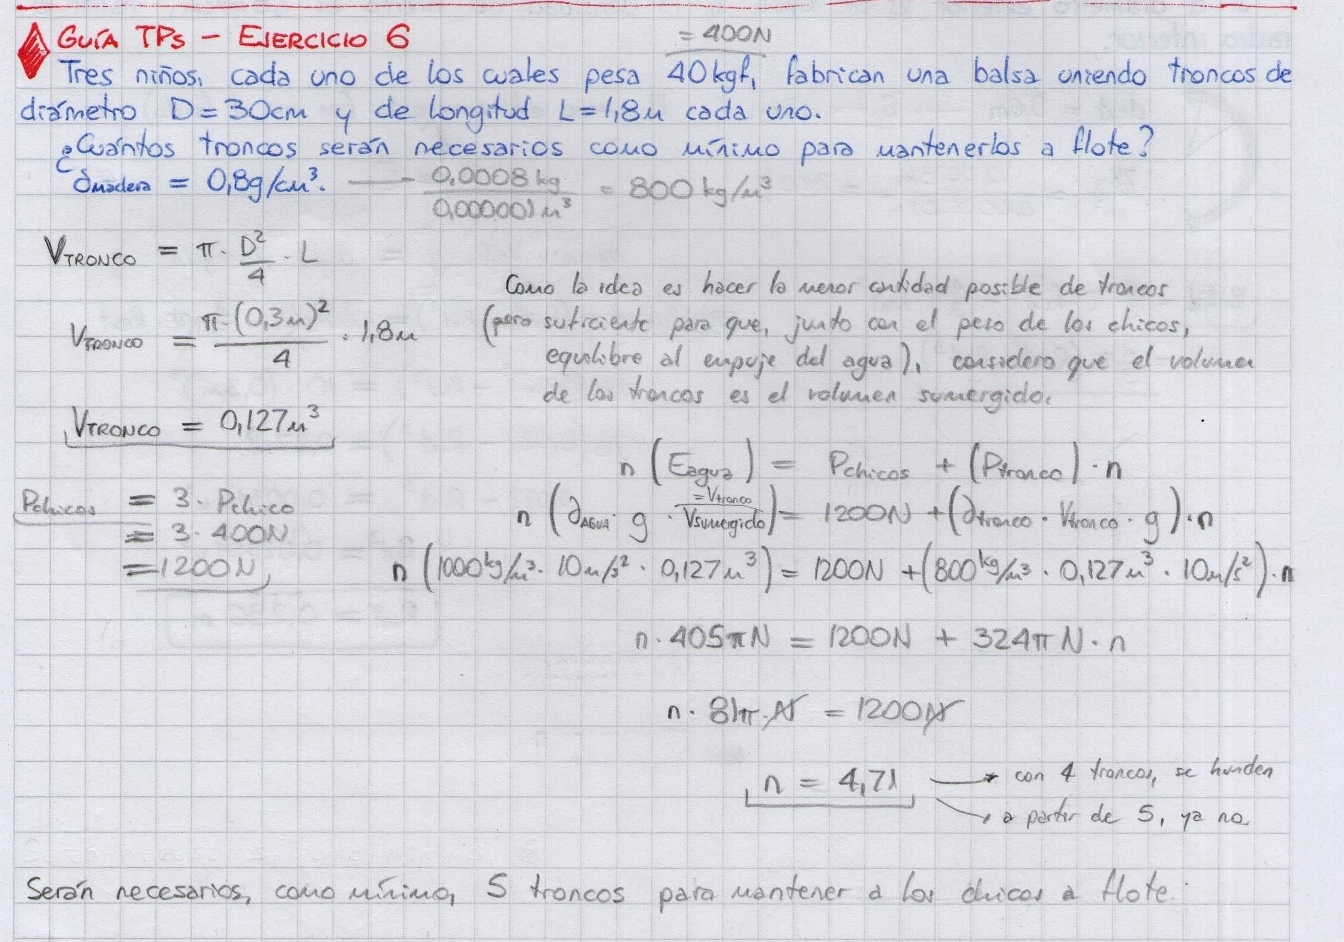 GUÍA TPs - EJERCICIO 6
= 400N
Tres niños, cada uno de los cuales pesa 40kgf, fabrican una balsa uniendo troncos de
diámetro D=30cm y de longitud L=1,8m cada uno.
¿Cuántos troncos serán necesarios como mínimo para mantenerlos a flote?
∂madera = 0,8g/cm³. — 0,0008 kg / 0,000001 m³ = 800 kg/m³
VTRONCO = π · D²/4 · L
VTRONCO = π·(0,3m)²/4 · 1,8m
VTRONCO = 0,127m³
Pchicos = 3 · Pchico
= 3 · 400N
= 1200N
Como la idea es hacer la menor cantidad posible de troncos
(pero suficiente para que, junto con el peso de los chicos,
equilibre al empuje del agua), considero que el volumen
de los troncos es el volumen sumergido.
n (Eagua) = Pchicos + (Ptronco) · n
n (∂AGUA · g · Vsumergido) = 1200N + (∂tronco · Vtronco · g) · n
= Vtronco
n (1000kg/m³ · 10m/s² · 0,127m³) = 1200N + (800kg/m³ · 0,127m³ · 10m/s²) · n
n · 405πN = 1200N + 324π N · n
n · 81π · N = 1200N
n = 4,71 → con 4 troncos, se hunden
→ a partir de 5, ya no
Serán necesarios, como mínimo, 5 troncos para mantener a los chicos a flote.